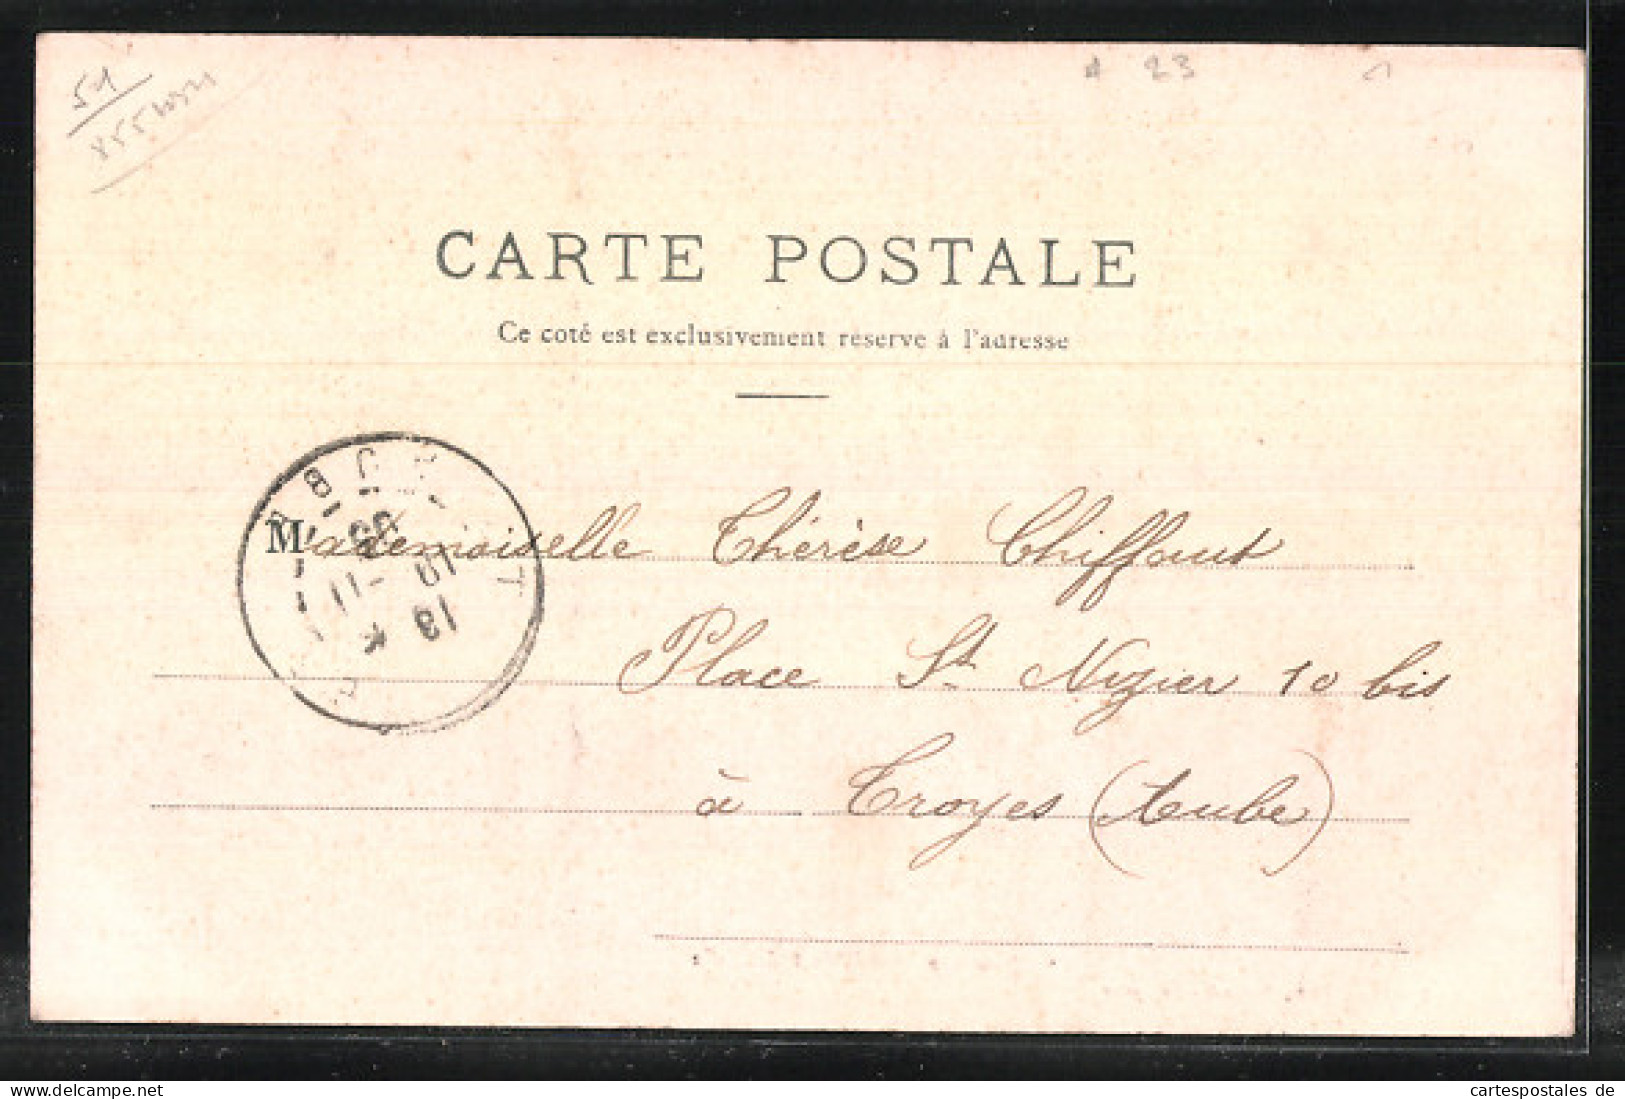 51
23
CARTE POSTALE
Ce coté est exclusivement reserve à l'adresse
Mademoiselle Thérèse Chiffaut
Place St Nizier 10 bis
à Troyes (Aube)
AUBE
11
10
13
posters-und-drucke
cartespostales de